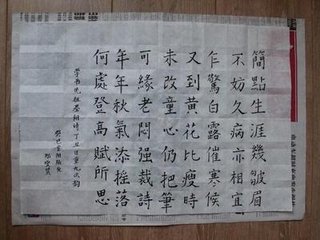 簡點生涯幾皺眉
不妨久病亦相宜
乍驚白露催寒候
又到黃花比瘦時
未改童心仍把筆
可緣老悶强裁詩
年年秋氣添摇落
何處登高賦所思